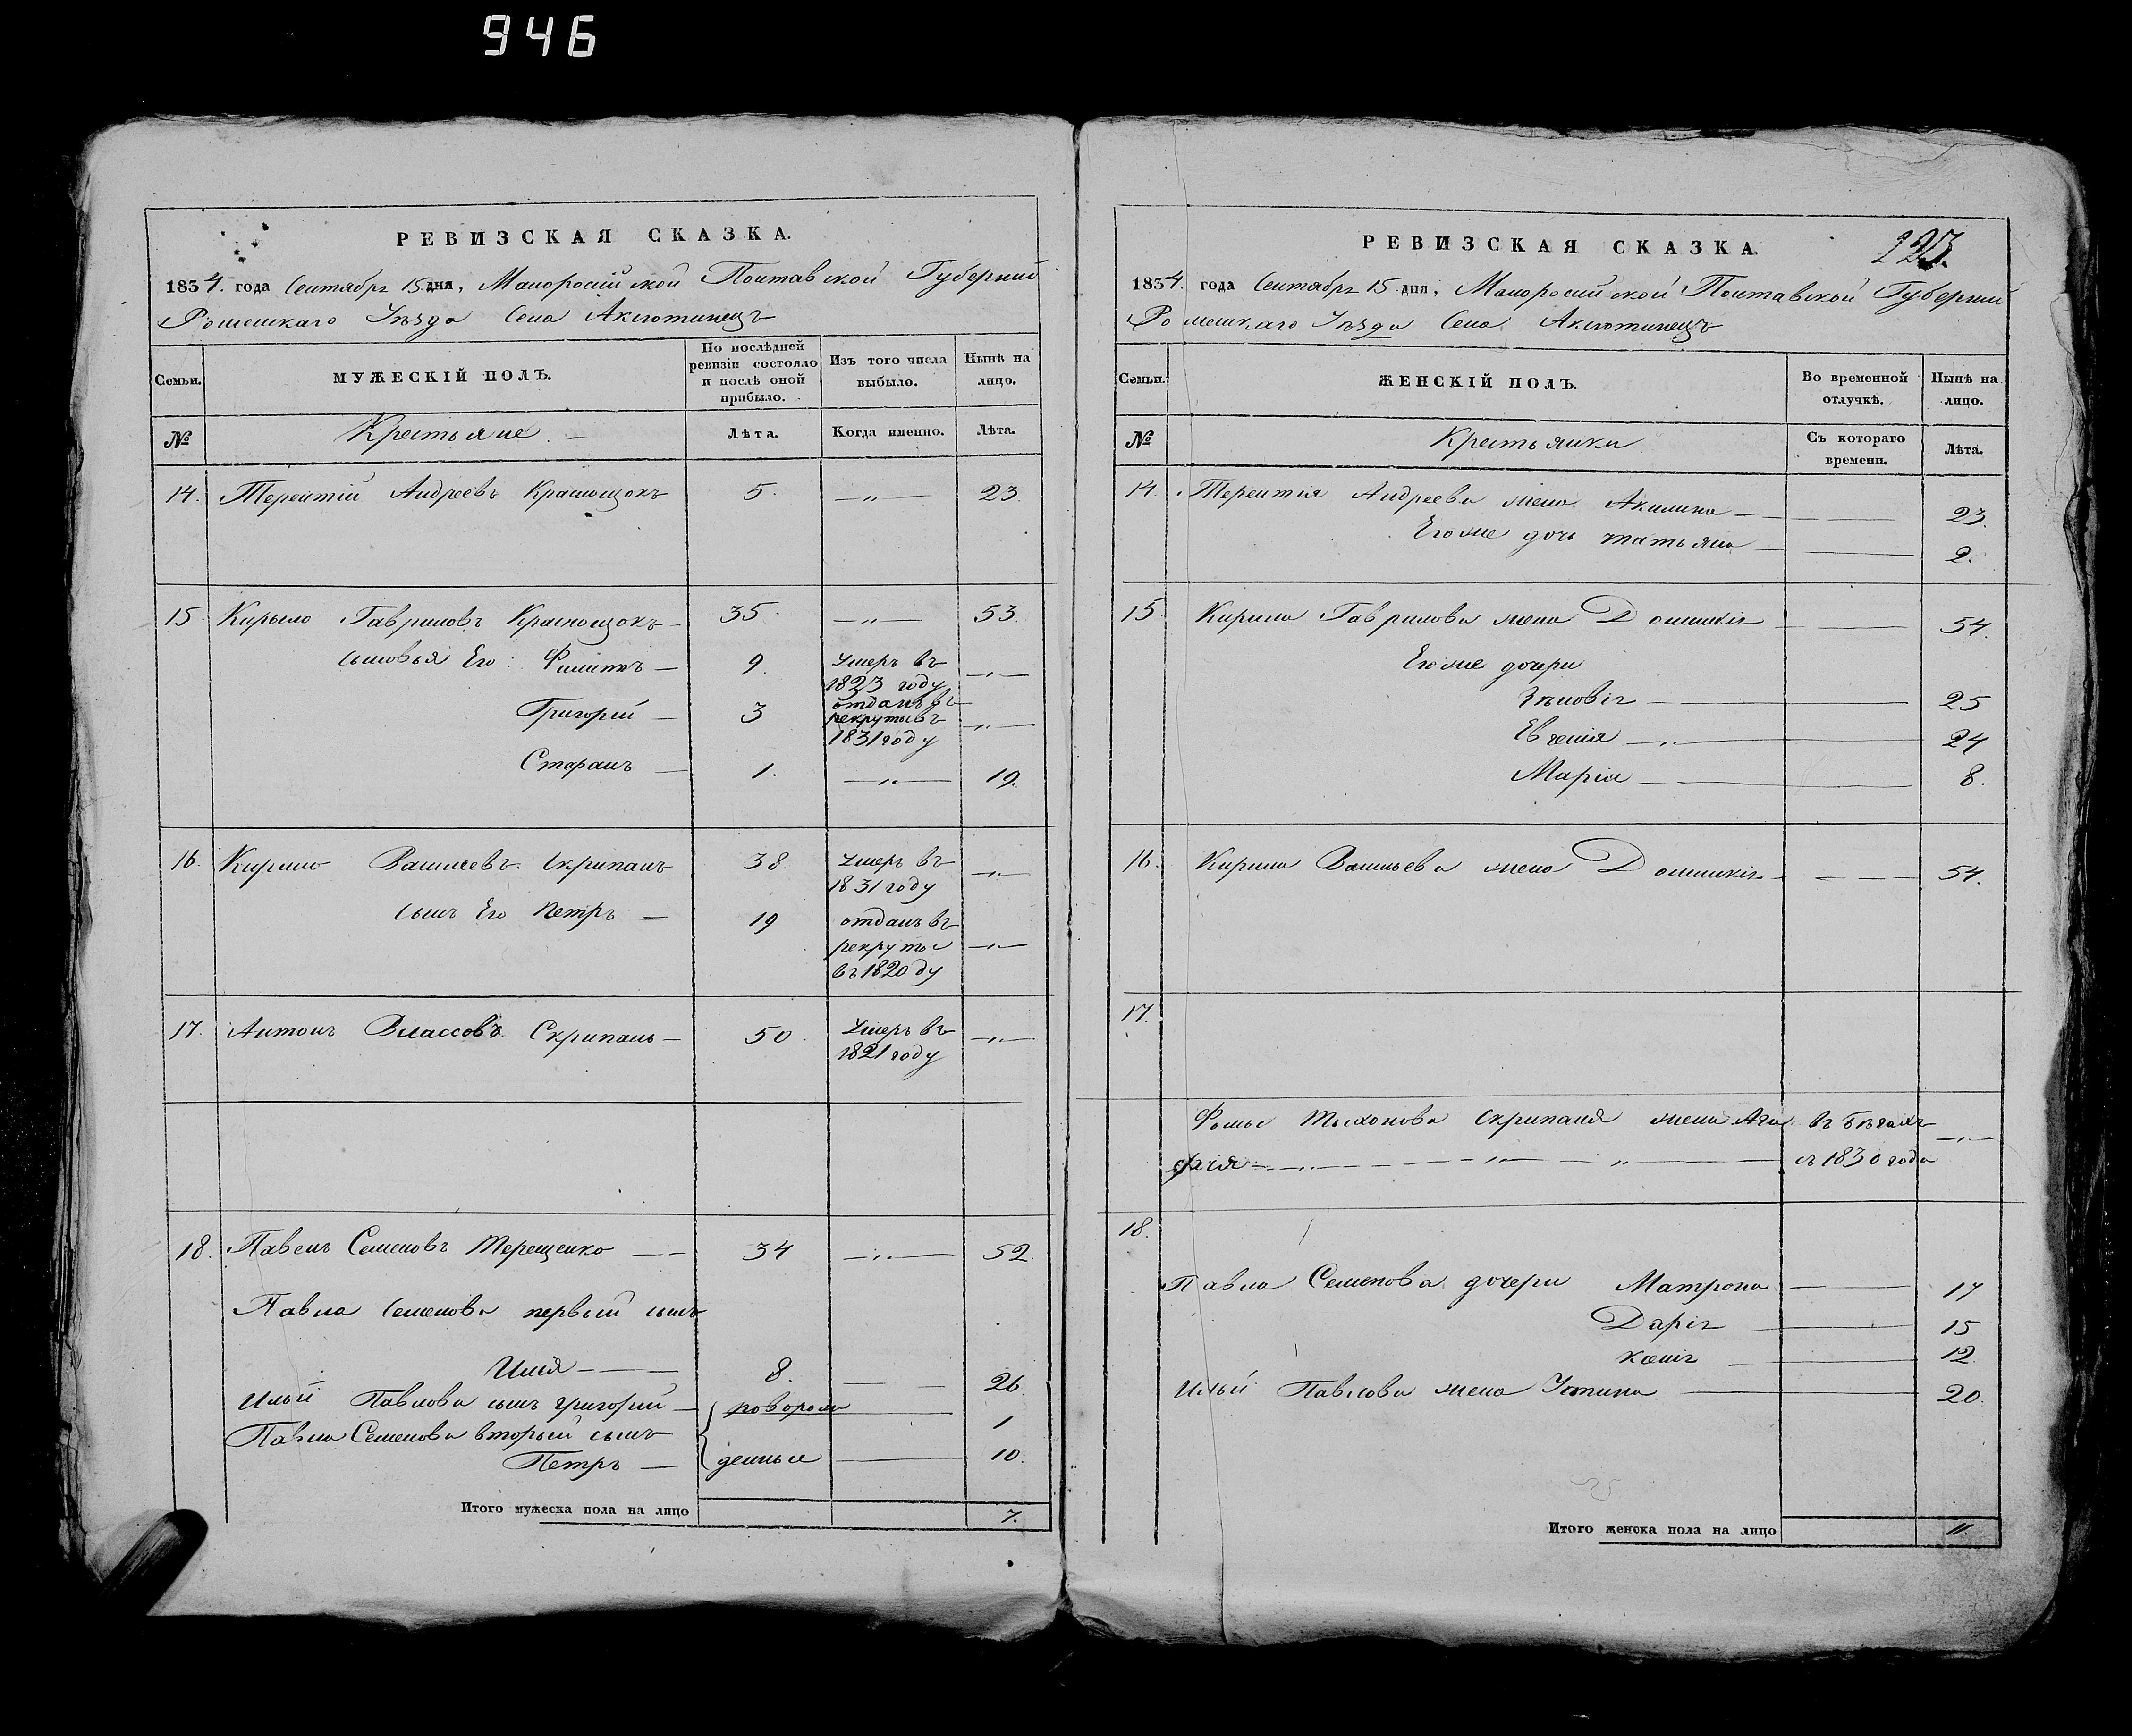 946
РЕВИЗСКАЯ СКАЗКА.
1834. года Сентября 15 дня, Малоросийской Полтавской Губерний
Роменскаго Уезда Села Аксютинецъ
Семьи.
МУЖЕСКІЙ ПОЛЪ.
По послѣдней ревизіи состояло и послѣ оной прибыло.
Изъ того числа выбыло.
Нынѣ на лицо.
№
Крестьяне
Лѣта.
Когда именно.
Лѣта.
14. Терентій Андреевъ Краснощокъ 5. —"— 23.
15. Кирыло Гавриловъ Краснощокъ 35. —"— 53.
сыновья Его: Филипъ — 9. Умеръ въ 1823 году —"—
Григорій — 3 отданъ въ рекруты въ 1831 году —"—
Старанъ — 1. —"— 19.
16. Кирило Васильевъ Скрипаль 38. Умеръ въ 1831 году —"—
сынъ Его Петръ — 19 отданъ въ рекруты въ 1820 ду —"—
17. Антонъ Власовъ Скрипаль — 50. Умеръ въ 1821 году —"—
18. Павелъ Семеновъ Терещенко — 34 —"— 52.
Павла Семенова первый сынъ
Илія — 8. — 26.
Ильи Павлова сынъ григорій — новорож — 1
Павла Семенова вторый сынъ
Петръ — денные — 10.
Итого мужеска пола на лицо 7.
РЕВИЗСКАЯ СКАЗКА
1834. года Сентября 15 дня, Малоросийской Полтавской Губерний
Роменскаго Уезда Села Аксютинецъ
Семьи.
ЖЕНСКІЙ ПОЛЪ.
Во временной отлучкѣ.
Нынѣ на лицо.
№
Крестьянки
Съ котораго времени.
Лѣта.
14. Терентія Андреева жена Акилина — 23.
Его же дочь татьяна — 2.
15. Кирила Гаврилова жена Домникія — 54.
Его же дочери
Зѣновія — 25
Евгенія —"— 24
Марія — 8.
16. Кирила Васильева жена Домникія — 54.
17.
Фомы Тыхонова Скрипаля жена Ага въ бѣгахъ —"—
фія —"— съ 1830 года
18.
Павла Семенова дочери Матрона — 17
Дарія — 15
— 12.
Ильи Павлова жена Устина — 20.
Итого женска пола на лицо 11.